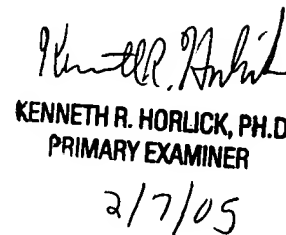 Kenneth R. Horlick
KENNETH R. HORLICK, PH.D
PRIMARY EXAMINER
2/7/05